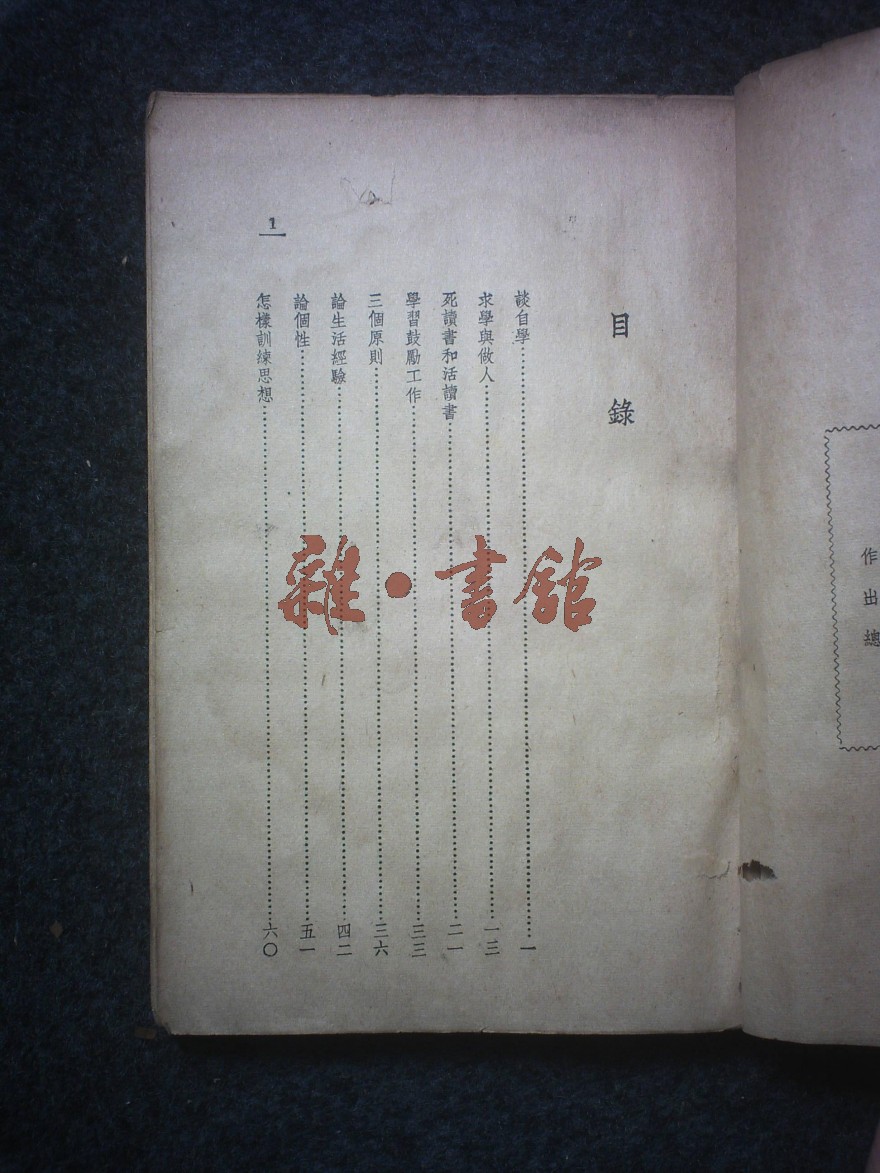 作
出
總
目錄
談自學……一
求學與做人……一三
死讀書和活讀書……二一
學習鼓勵工作……三三
三個原則……三六
論生活經驗……四二
論個性……五一
怎樣訓練思想……六〇
1
雜·書館